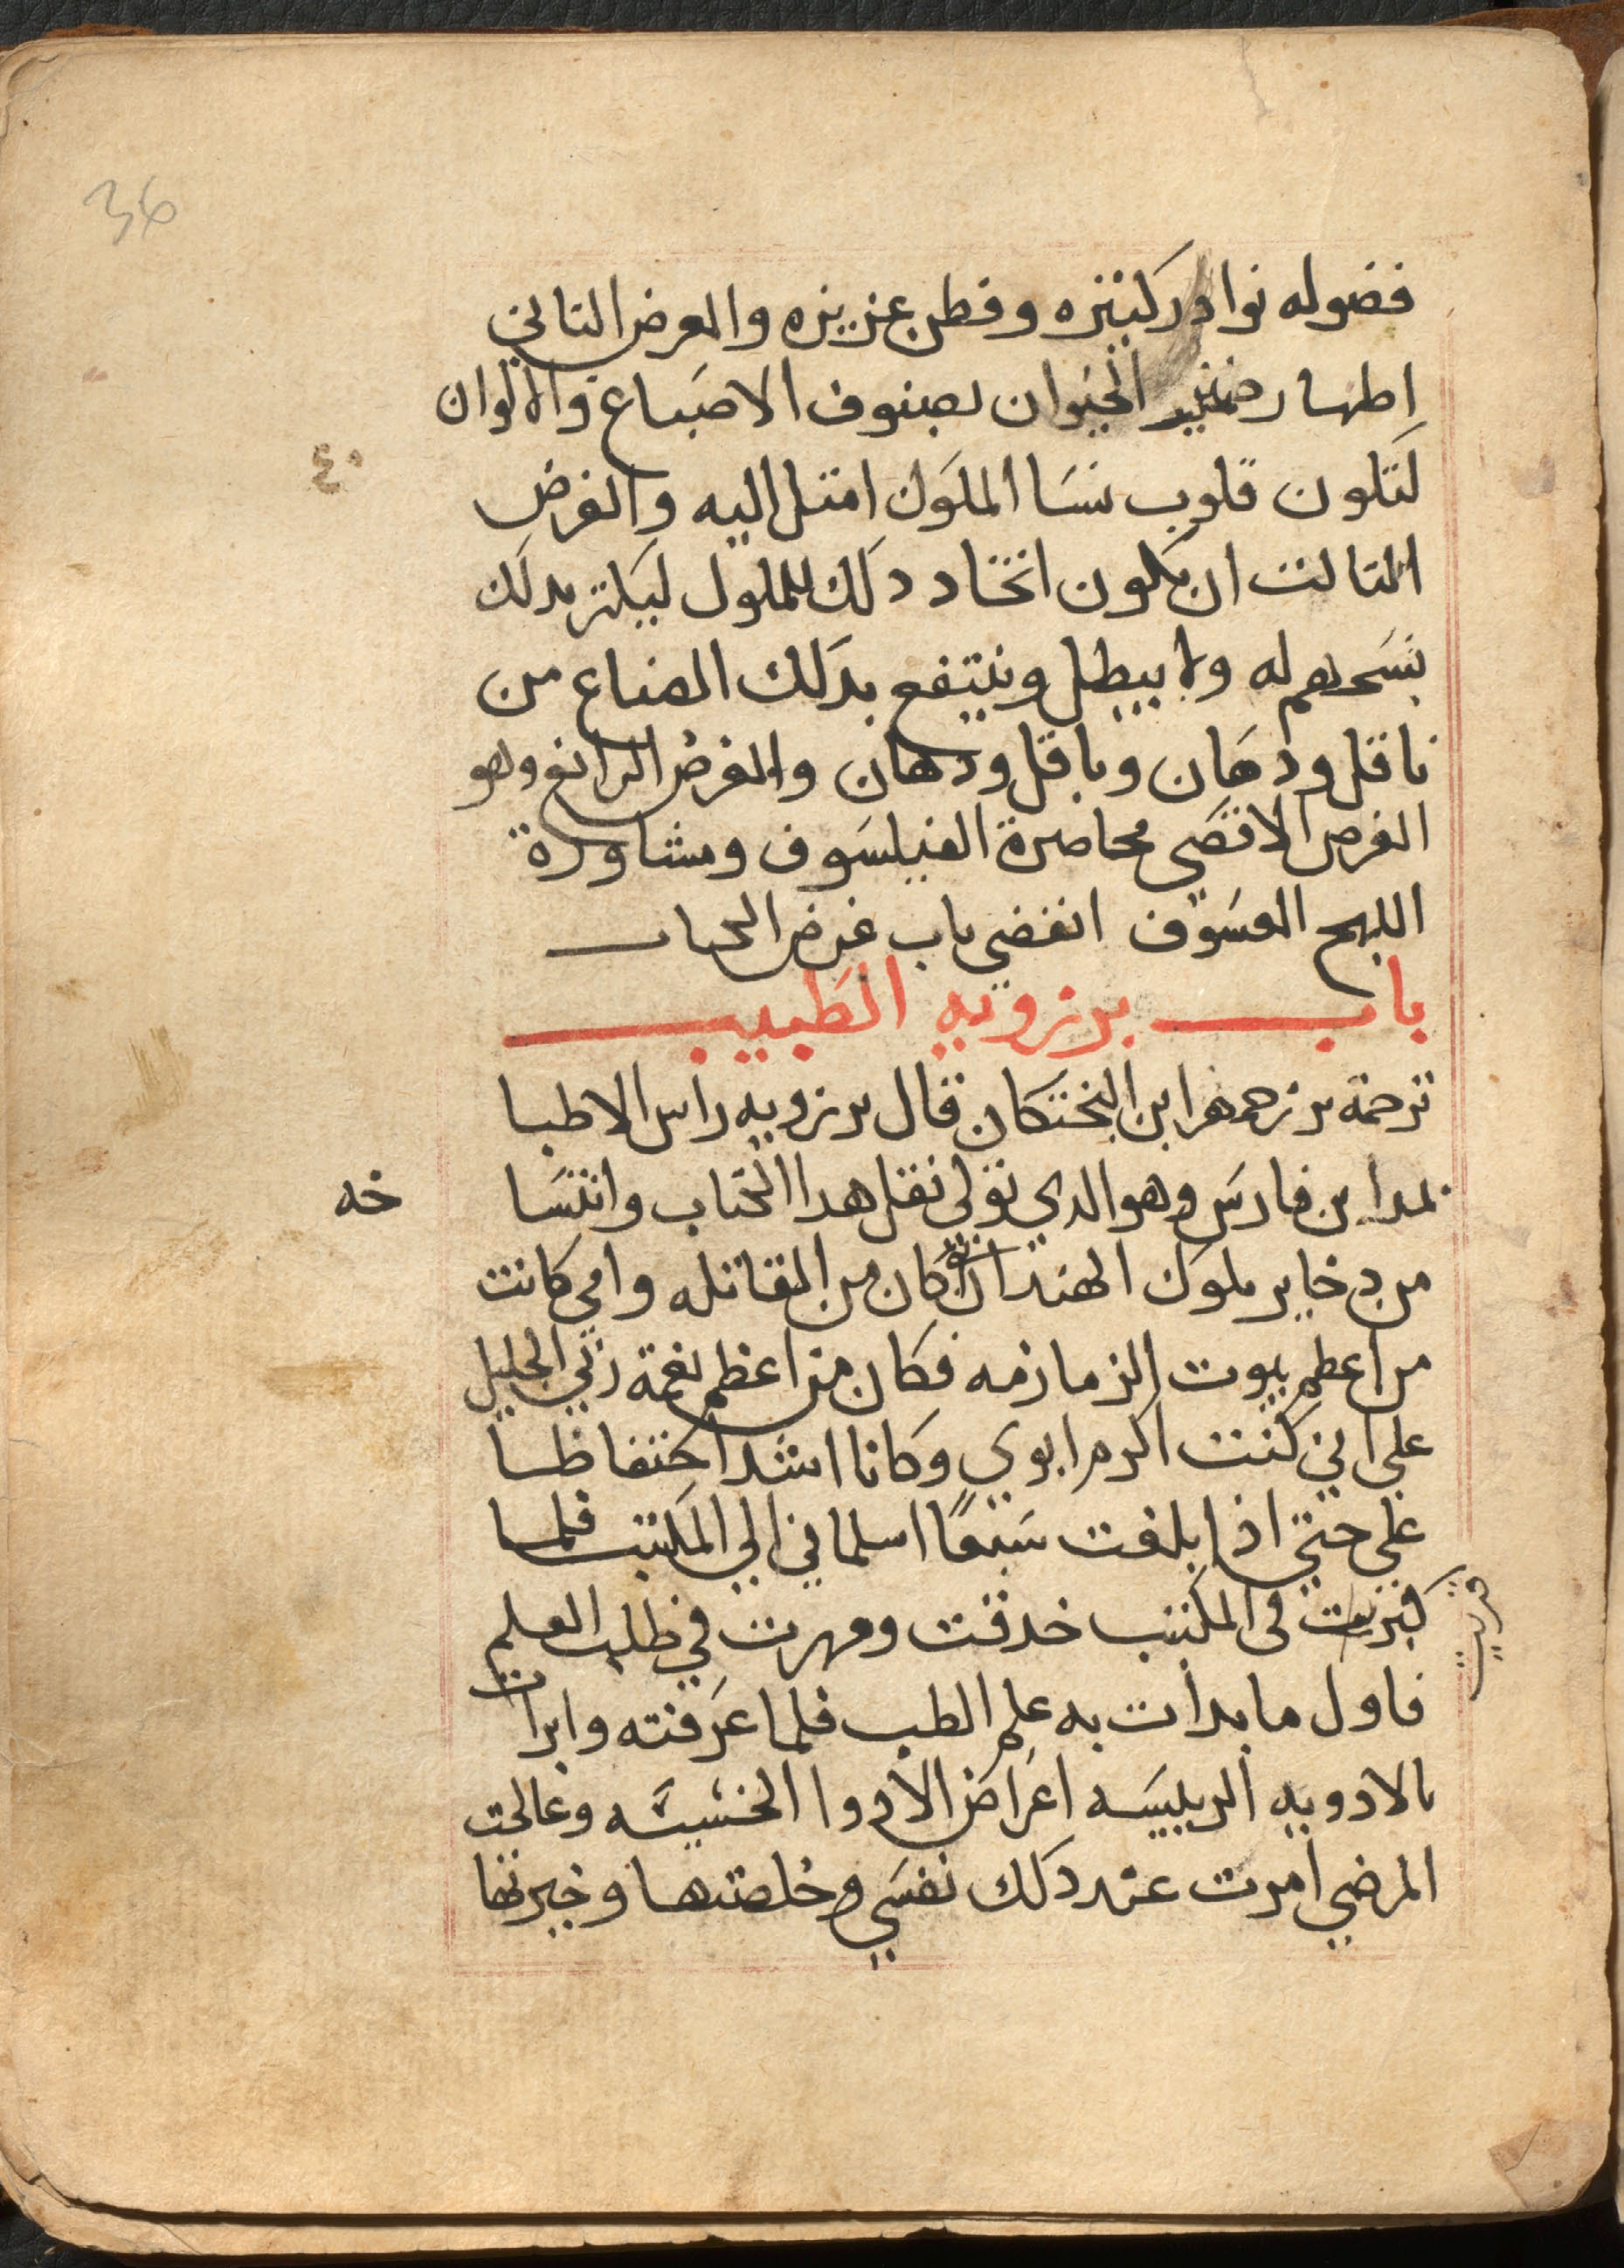 36
فضوله نوادر كثيره وفطن عزيزه والغرض الثاني
اظهار ضمير الحيوان بصنوف الاصباغ والالوان
٤٠
لتكون قلوب نسا الملوك امتل اليه والغرض
الثالث ان يكون اتخاد دلك للملوك ليكثر بدلك
نسخهم له ولا يبطل وينتفع بدلك الصناع من
ناقل ودهان وباقل ودهان والغرض الرابع وهو
الغرض الاقصى محاضرة الفيلسوف ومشاورة
اللهج العسوف انقضي باب غرض الكتاب
باب برزويه الطبيب
ترجمة بزرجمهر ابن البختكان قال برزويه راس الاطبا
بمداين فارس وهو الدي تولي نقل هدا الكتاب وانتسا
خه
من دخاير ملوك الهند ان ابي كان من المقاتله وامي كانت
من اعظم بيوت الزمازمه فكان من اعظم نعمة ربي الجليل
علي انني كنت اكرم ابوي وكانا اشد احتفاظا
علي حتي اذا بلغت سبعًا اسلماني الي المكتب فلما
كبرت في المكتب حدقت ومهرت في طلب العلم
تربيت
فاول ما بدات به علم الطب فلما عرفته وابرات
بالادويه الرييسه اعراض الادوا الخسيسه وعالجت
المرضي امرت عند دلك نفسي وخلصتها وخيرتها